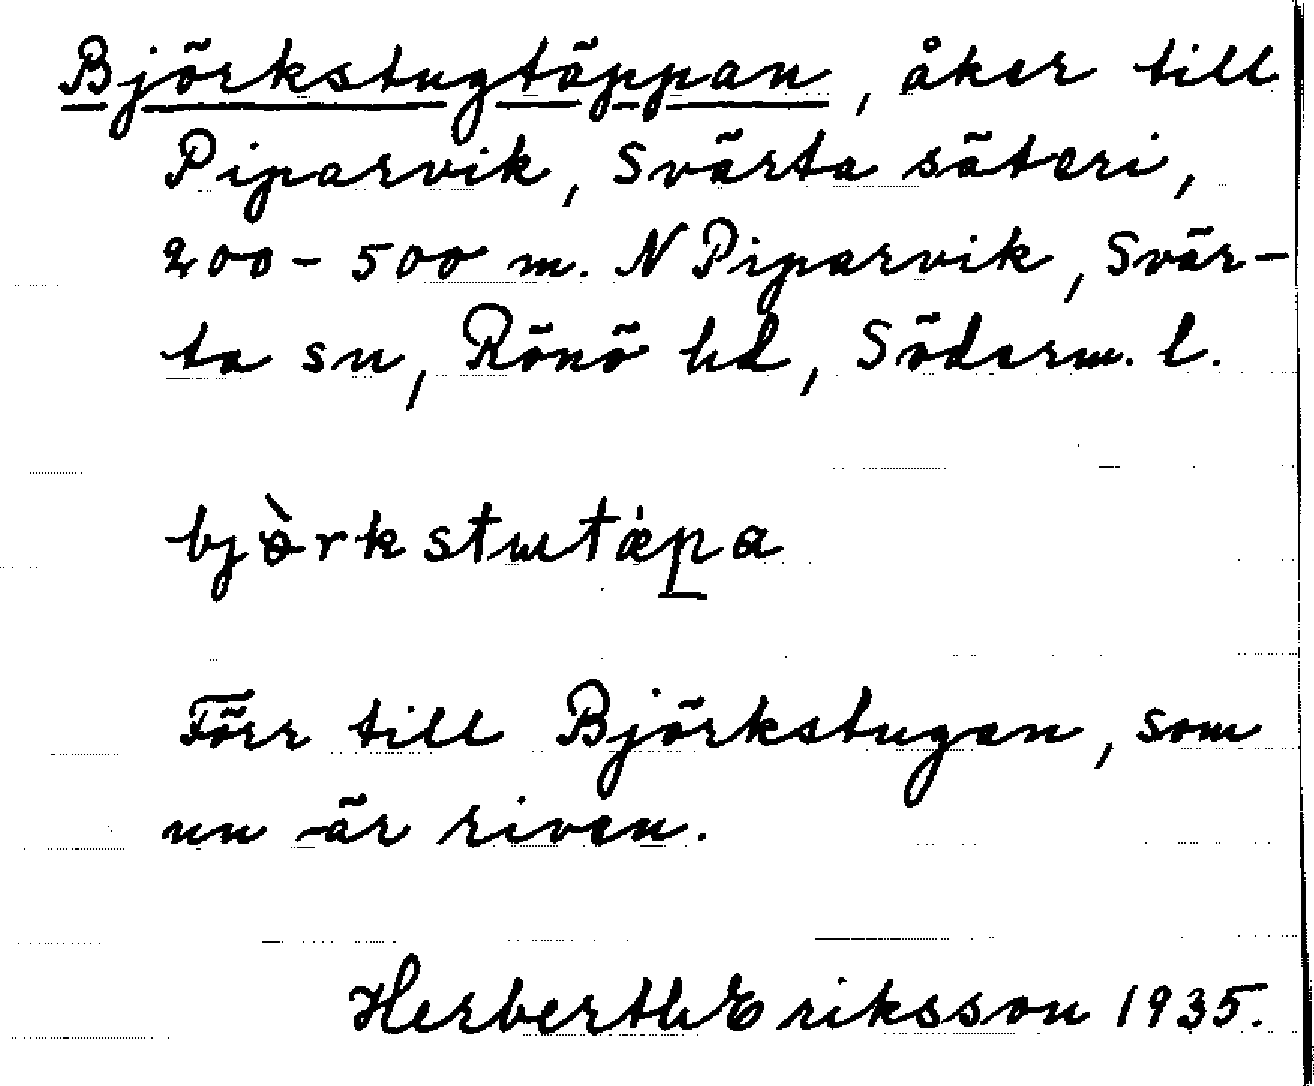 Björkstugtäppan, åker till
Piparvik, Svärta säteri,
200-500 m. N Piparvik, Svär-
ta sn, Rönö hd, Söderm. l.
bjɵ̀rkstutæ̀p̲a
Förr till Björkstugan, som
nu är riven.
Herberth Eriksson 1935.